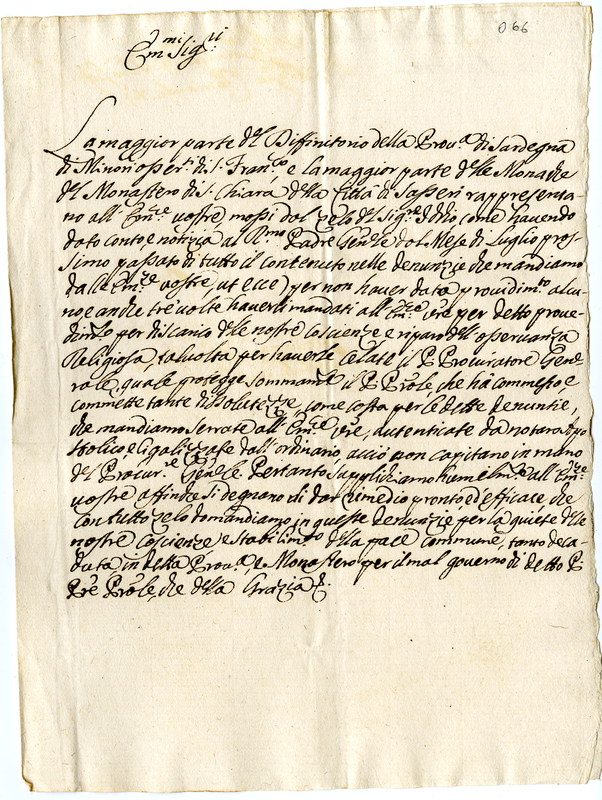 066
Em.mi Sig.ri
La maggior parte del Diffinitorio della Prov.a di Sardegna
di Minori osser.ti di S. Fran.co, e la maggior parte delle Monache
del Monastero di S. Chiara della Città di Sasseri rappresenta-
no all' Em.ze vostre mossi dal zelo del Sig.re Iddio come havendo
dato conto e notizia al R.mo Padre Gen.le dal Mese di Luglio pros-
simo passato di tutto il contenuto nelle denunzie che mandiamo
da le Em.ze vostre, ut ecce) per non haver data providim.to alcu-
no e anche tre volte haverli mandati all' Em.ze vře per detto prove-
dim.to per discarico delle nostre coscienze e riparo dell' osservanza
Religiosa, talvolta per haverle celate il P. Procuratore Gene-
rale, quale protegge sommam.te il P. Prõle, che ha commesso e
commette tante dissolutezze, come costa per le dette denuntie,
che mandiamo serrate all' Em.ze vře, autenticate da notaro Apo
stolico e legalizzate dall' ordinario, acciò non capitano in mano
del Procur.re Gen̄ele. Pertanto supplichiamo humilm.te all' Em.ze
vostre affinche si degnano di dar rimedio pronto, ed efficace, che
con tutto zelo domandiamo in queste denunzie per la quiete delle
nostre coscienze e stabilim.to della pace commune, tanto deca-
duta in detta Prov.a, e Monastero per il mal governo di detto P.
Přẽ Prõle, che della Grazia &.